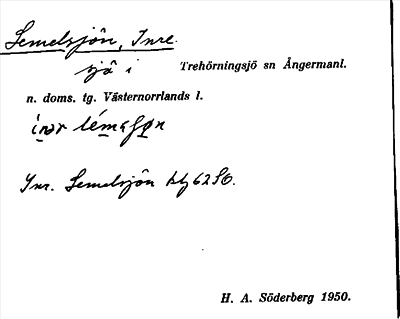 Lemelsjön, Inre.
sjö i Trehörningsjö sn Ångermanl.
n. doms. tg. Västernorrlands l.
Inr. Lemelsjön blj62SO.
H. A. Söderberg 1950.